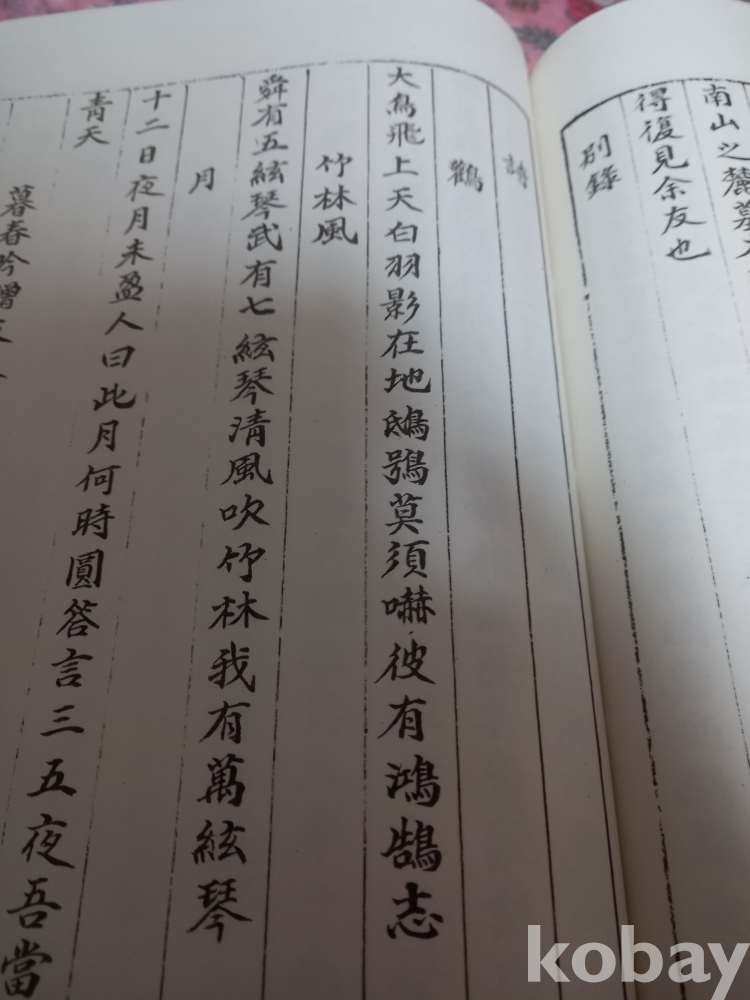 南山之麓墓
得復見余友也
別錄
詩
鸛
大鳥飛上天白羽影在地鴟鴞莫須嚇彼有鴻鵠志
竹林風
舜有五絃琴武有七絃琴清風吹竹林我有萬絃琴
月
十二日夜月未盈人曰此月何時圓答言三五夜吾當
青天
暮春吟
kobay